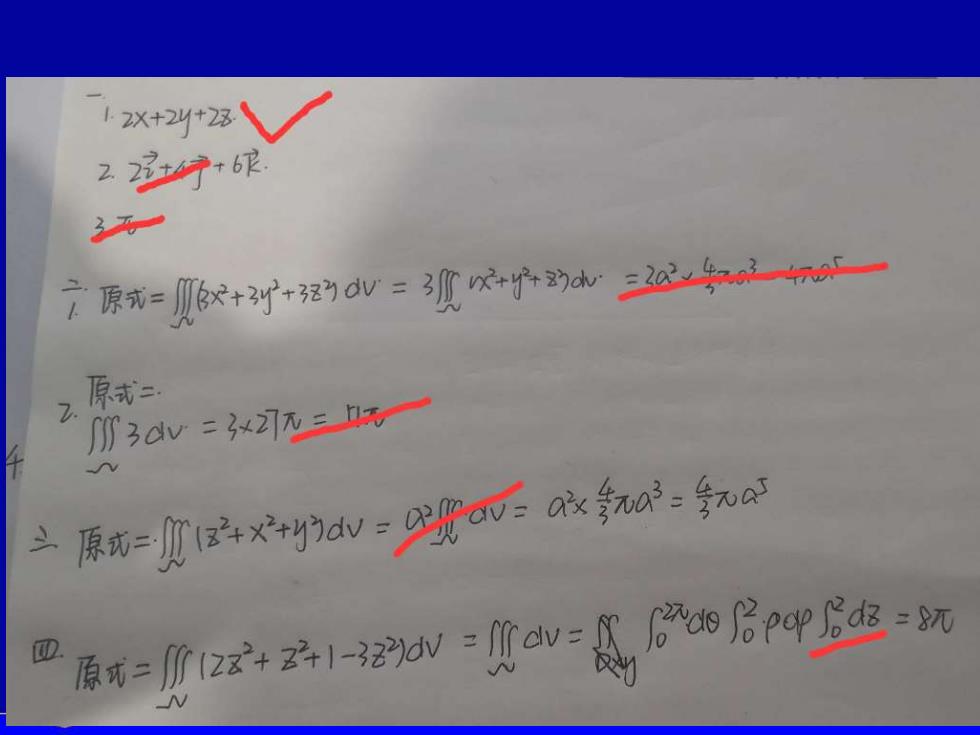 一.
1. 2x+2y+2z.
2. 2i⃗+4j⃗+6k⃗.
3. π
二.
1. 原式=∭(3x²+3y²+3z²)dv = 3∭(x²+y²+z²)dv =3a²×4/3πa³
2. 原式=.
∭3dv = 3×27π =
三 原式=∭(z²+x²+y²)dv = a²∭dv = a²×4/3πa³ = 4/3πa⁵
四. 原式=∭(2z²+z²+1-3z²)dv = ∭dv = ∫₀²π dθ ∫₀² ρdρ ∫₀² dz = 8π